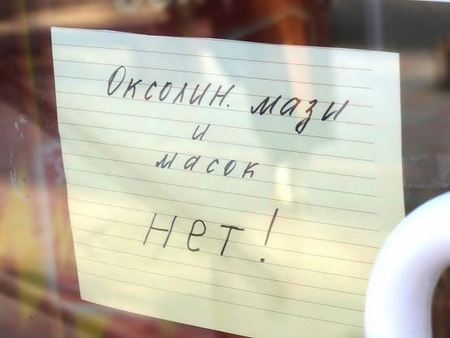 Оксолин. мази
и
масок
нет!